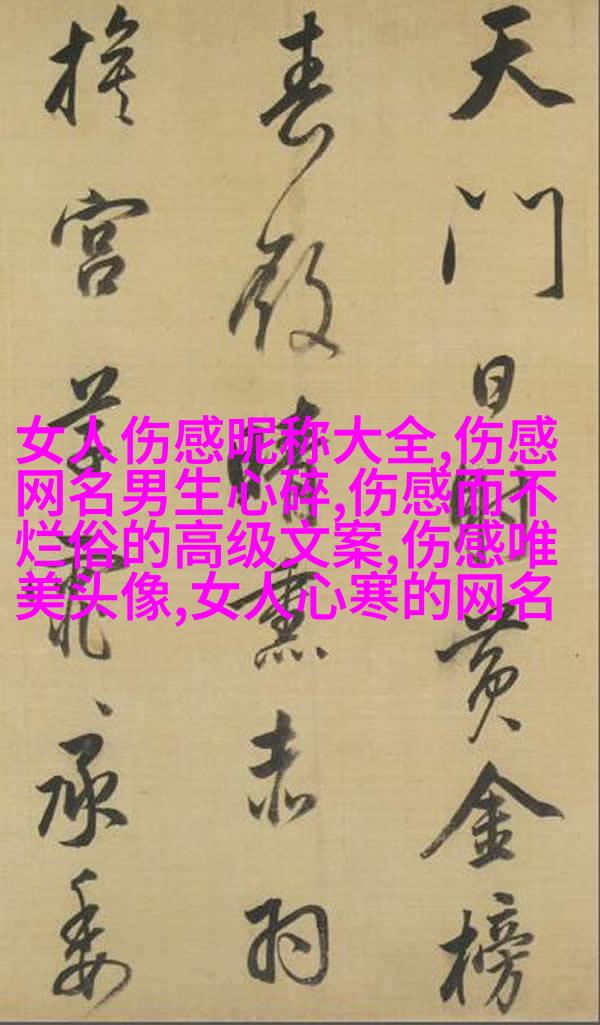 天門日射黄金榜
春殿晴熏赤羽
旗宮草霏々承委
女人伤感昵称大全,伤感
网名男生心碎,伤感而不
烂俗的高级文案,伤感唯
美头像,女人心寒的网名